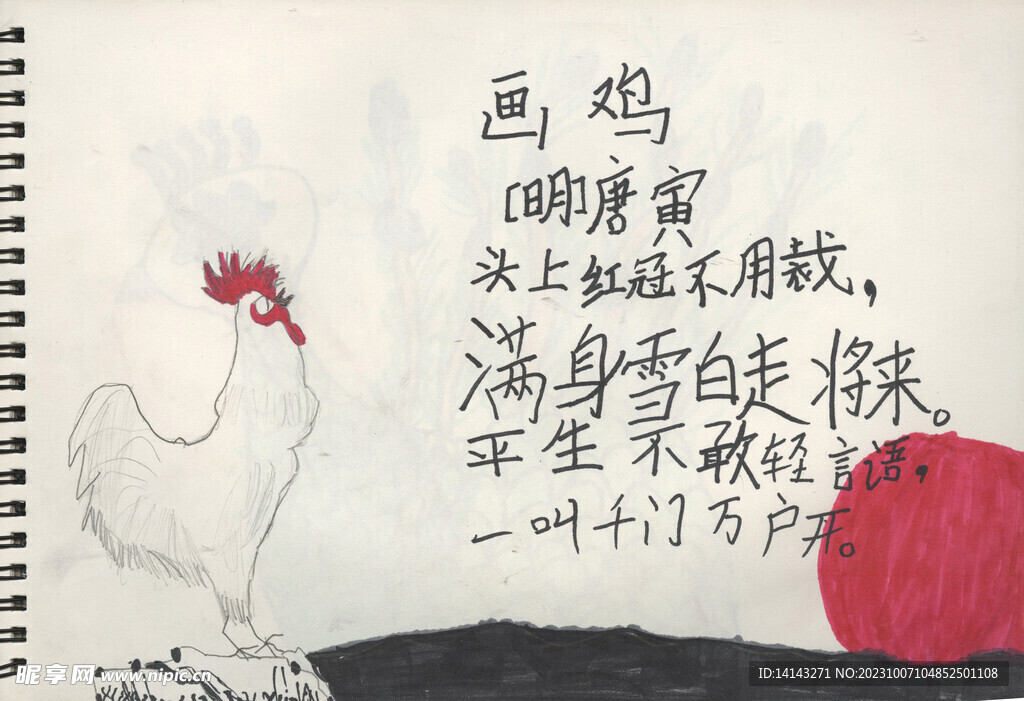 画鸡
[明]唐寅
头上红冠不用裁，
满身雪白走将来。
平生不敢轻言语，
一叫千门万户开。
昵享网 www.nipic.cn
ID:14143271 NO:20231007104852501108